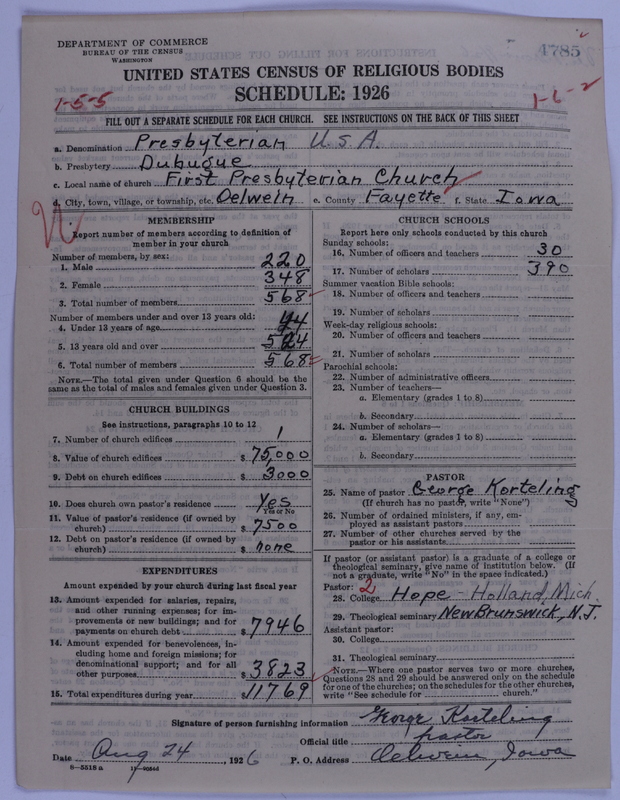 DEPARTMENT OF COMMERCE
BUREAU OF THE CENSUS
WASHINGTON
4785
UNITED STATES CENSUS OF RELIGIOUS BODIES
SCHEDULE: 1926
1-5-5
1-6-2
FILL OUT A SEPARATE SCHEDULE FOR EACH CHURCH. SEE INSTRUCTIONS ON THE BACK OF THIS SHEET
a. Denomination Presbyterian U.S.A.
b. Presbytery Dubugue
c. Local name of church First Presbyterian Church
d. City, town, village, or township, etc. Oelwein e. County Fayette f. State Iowa
MEMBERSHIP
Report number of members according to definition of member in your church
Number of members, by sex:
1. Male 220
2. Female 348
3. Total number of members 568
Number of members under and over 13 years old:
4. Under 13 years of age 44
5. 13 years old and over 524
6. Total number of members 568
NOTE.—The total given under Question 6 should be the same as the total of males and females given under Question 3.
CHURCH BUILDINGS
See instructions, paragraphs 10 to 12
7. Number of church edifices 1
8. Value of church edifices $ 75,000
9. Debt on church edifices $ 3000
10. Does church own pastor's residence Yes
Yes or No
11. Value of pastor's residence (if owned by church) $ 7500
12. Debt on pastor's residence (if owned by church) $ none
EXPENDITURES
Amount expended by your church during last fiscal year
13. Amount expended for salaries, repairs, and other running expenses; for improvements or new buildings; and for payments on church debt $ 7946
14. Amount expended for benevolences, including home and foreign missions; for denominational support; and for all other purposes $ 3823
15. Total expenditures during year $ 11769
CHURCH SCHOOLS
Report here only schools conducted by this church
Sunday schools:
16. Number of officers and teachers 30
17. Number of scholars 390
Summer vacation Bible schools:
18. Number of officers and teachers
19. Number of scholars
Week-day religious schools:
20. Number of officers and teachers
21. Number of scholars
Parochial schools:
22. Number of administrative officers
23. Number of teachers—
a. Elementary (grades 1 to 8)
b. Secondary
24. Number of scholars—
a. Elementary (grades 1 to 8)
b. Secondary
PASTOR
25. Name of pastor George Korteling
(If church has no pastor, write "None")
26. Number of ordained ministers, if any, employed as assistant pastors
27. Number of other churches served by the pastor or his assistants
If pastor (or assistant pastor) is a graduate of a college or theological seminary, give name of institution below. (If not a graduate, write "No" in the space indicated.)
Pastor: 2
28. College Hope - Holland, Mich.
29. Theological seminary New Brunswick, N.J.
Assistant pastor:
30. College
31. Theological seminary
NOTE.—Where one pastor serves two or more churches, Questions 28 and 29 should be answered only on the schedule for one of the churches; on the schedules for the other churches, write "See schedule for church."
Signature of person furnishing information George Korteling
Official title pastor
Date Aug 24, 1926 P. O. Address Oelwein, Iowa